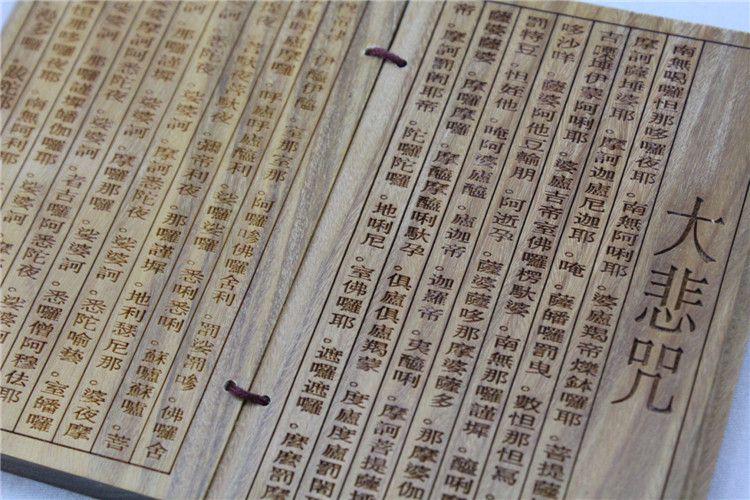 大悲咒
南無喝囉怛那哆囉夜耶。南無阿唎耶。婆盧羯帝爍鉢囉耶。菩提薩
摩訶薩埵婆耶。摩訶迦盧尼迦耶。唵。薩皤囉罰曳。數怛那怛寫
吉㗚埵伊蒙阿唎耶。婆盧吉帝室佛囉楞馱婆。南無那囉謹墀。醯唎
哆沙咩。薩婆阿他豆輸朋。阿逝孕。薩婆薩哆那摩婆薩多。那摩婆伽
罰特豆。怛姪他。唵阿婆盧醯。盧迦帝。迦羅帝。夷醯唎。摩訶菩提薩埵
薩婆薩婆。摩囉摩囉。摩醯摩醯唎馱孕。俱盧俱盧羯蒙。度盧度盧罰闍
帝。摩訶罰闍耶帝。陀囉陀囉。地唎尼。室佛囉耶。遮囉遮囉。麼麼罰
伊醯伊醯。室那室那。阿囉嘇佛囉舍利。罰娑罰嘇。佛囉舍
呼盧呼盧醯利。娑囉娑囉。悉唎悉唎。蘇嚧蘇嚧。菩
馱夜菩馱夜。彌帝利夜。那囉謹墀。地利瑟尼那。婆夜摩
訶。悉陀夜。娑婆訶。摩訶悉陀夜。娑婆訶。悉陀喻藝。室皤囉
那囉謹墀。娑婆訶。摩囉那囉。娑婆訶。悉囉僧阿穆佉耶
訶阿悉陀夜。娑婆訶。者吉囉阿悉陀夜。娑婆訶
那囉謹墀皤伽囉耶。娑婆訶
怛那哆囉夜耶。南無阿利耶